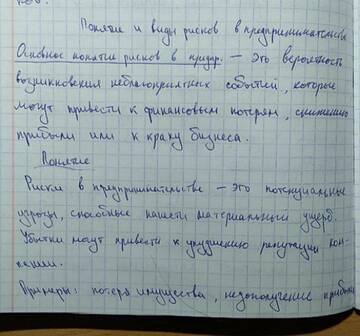 Понятие и виды рисков в предпринимательстве
Основное понятие рисков в предпр. – это вероятность
возникновения неблагоприятных событий, которые
могут привести к финансовым потерям, снижению
прибыли или к краху бизнеса.
Понятие
Риски в предпринимательстве – это потенциальные
угрозы, способные нанести материальный ущерб.
Убытки могут привести к ухудшению репутации ком-
пании.
Примеры: потеря имущества, недополучение прибыли